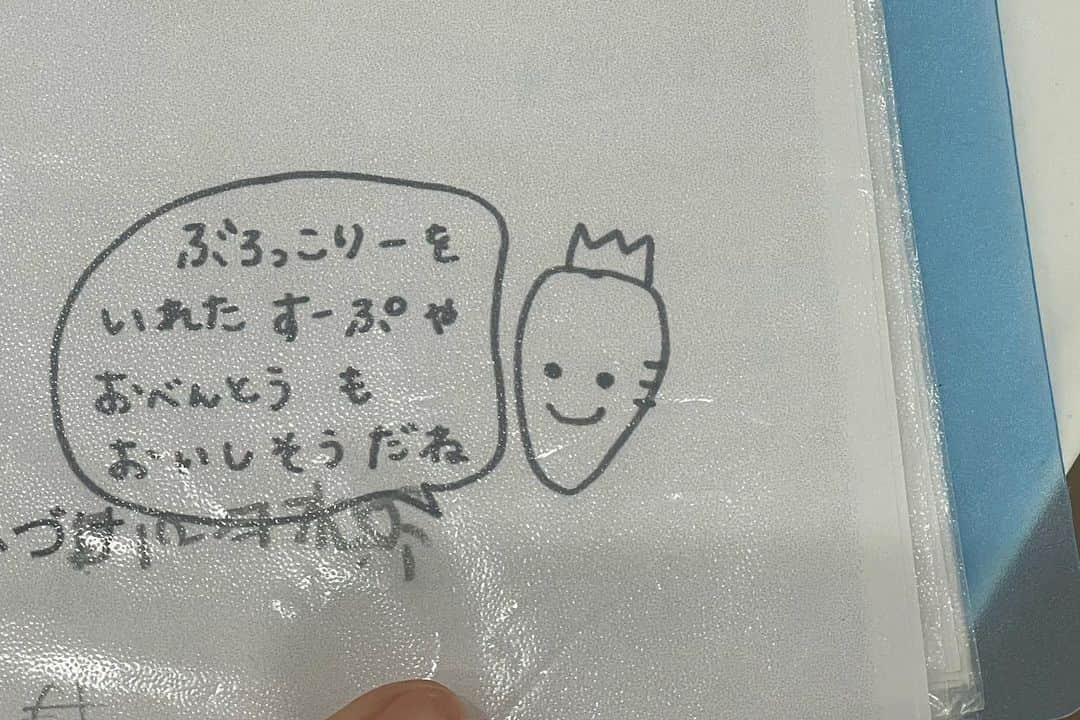 ぶろっこりーを
いれた すーぷや
おべんとう も
おいしそうだね